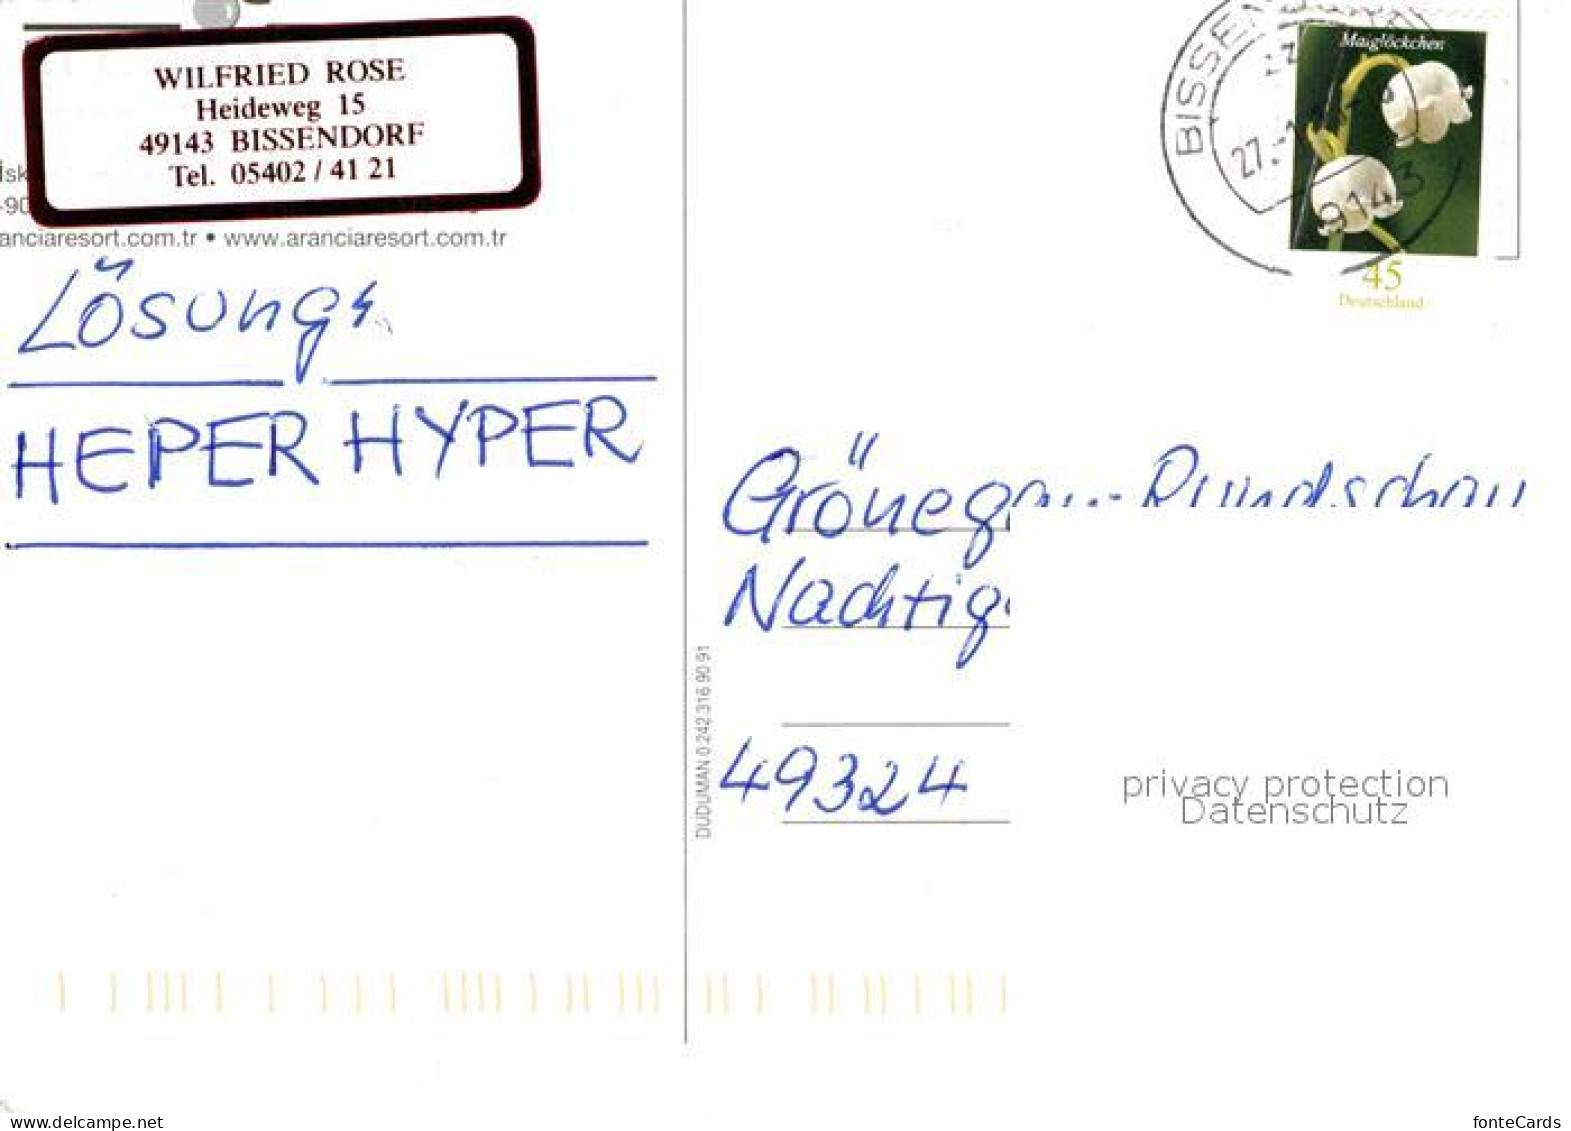 WILFRIED ROSE
Heideweg 15
49143 BISSENDORF
Tel. 05402 / 41 21
anciaresort.com.tr • www.aranciaresort.com.tr
Lösungs
HEPER HYPER
Maiglöckchen
45
Deutschland
Grönegau-Rundschau
Nachtig
49324
DUDUMAN 0.242.316 90 91
privacy protection
Datenschutz
www.delcampe.net
fonteCards